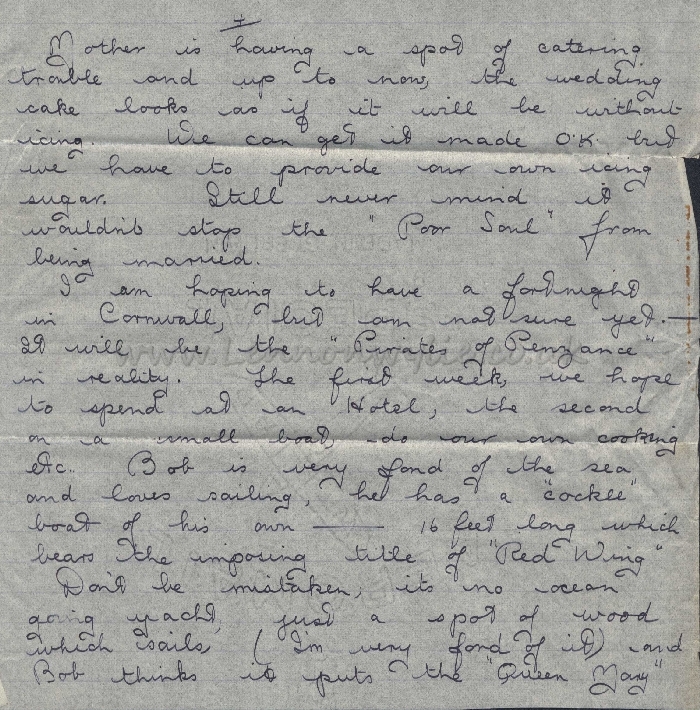 Mother is having a spot of catering
trouble and up to now, the wedding
cake looks as if it will be without
icing. We can get it made O.K. but
we have to provide our own icing
sugar. Still never mind it
wouldn't stop the "Poor Soul" from
being married.
I am hoping to have a fortnight
in Cornwall, but am not sure yet. —
It will be the "Pirates of Penzance"
in reality. The first week, we hope
to spend at an Hotel, the second
on a small boat, do our own cooking
etc. Bob is very fond of the sea
and loves sailing, he has a "cockle"
boat of his own — 16 feet long which
bears the imposing title of "Red Wing"
Don't be mistaken, its no ocean
going yacht, just a spot of wood
which sails, (I'm very fond of it) and
Bob thinks it puts the "Queen Mary"